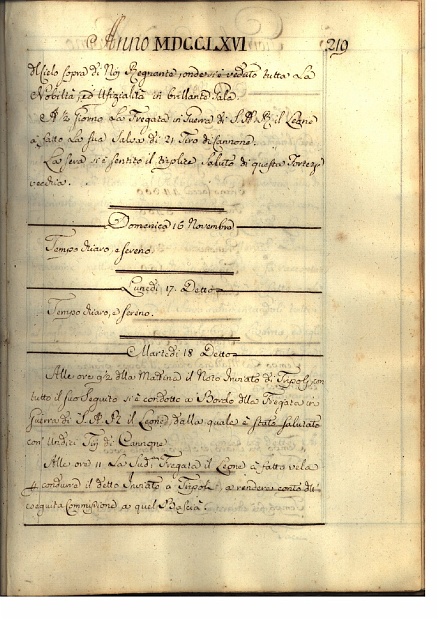 Anno MDCCLXVI 219
del Cielo sopra di Noi Regnante, onde si è veduto tutta La
Nobiltà, ed Ufizialità in brillante Gala.
A ½ Giorno La Fregata in Guerra di S.A.R. il Leone
à fatto La sua Salva di 21 Tiro di Cannone.
La sera si è sentito il triplice Saluto di questa Fortezza
vecchia.
Domenica 16 Novembre
Tempo chiaro, e sereno.
Lunedi 17. Detto
Tempo chiaro, e sereno.
Martedi 18 Detto
Alle ore 9½ della Mattina il Noto Inviato di Tripoli con
tutto il suo Seguito si è condotto a Bordo della Fregata in
Guerra di S.A.R. il Leone, dalla quale è stato salutato
con Undici Tiri di Cannone.
Alle ore 11 La Sud.ª Fregata il Leone à fatto vela
condurre il detto Inviato a Tripoli, a rendere conto dell'
eseguita Commissione, a quel Bascià.